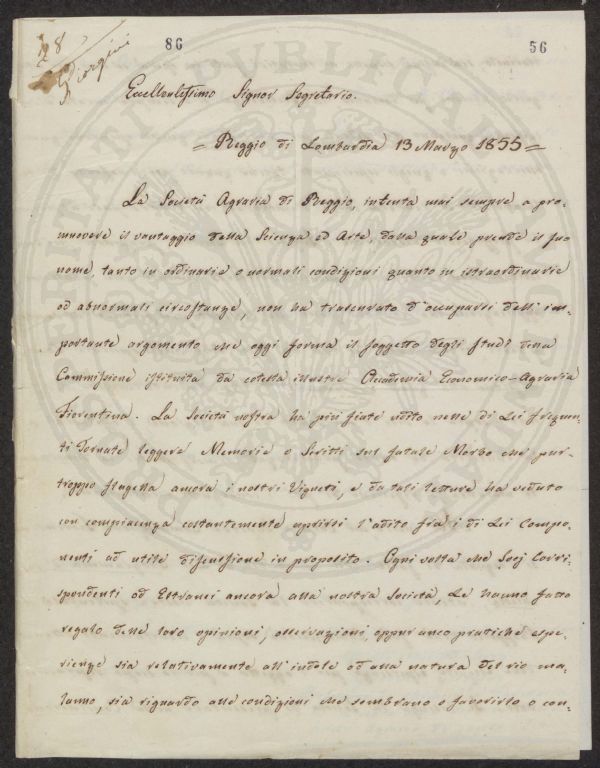 128
Giorgini
86
56
Eccellentissimo Signor Segretario.
= Reggio di Lombardia 13 Marzo 1855 =
La Società Agraria di Reggio, intenta mai sempre a pro-
muovere il vantaggio della Scienza ed Arte, dalla quale prende il suo
nome, tanto in ordinarie o normali condizioni quanto in istraordinarie
od abnormali circostanze, non ha trascurato d'occuparsi dell' im-
portante argomento che oggi forma il soggetto degli Studj della
Commissione istituita da cotesta illustre Accademia Economico-Agraria
Fiorentina. La Società nostra ha più fiate udito nelle di Lei frequen-
ti Tornate leggere Memorie o Scritti sul fatale Morbo che pur-
troppo flagella ancora i nostri Vigneti, e da tali letture ha veduto
con compiacenza costantemente aprirsi l'adito frà i di Lei Compo-
nenti ad utile discussione in proposito. Ogni volta che Socj Corri-
spondenti od Estranei ancora alla nostra Società, Le hanno fatto
regalo delle loro opinioni, osservazioni, oppur anco pratiche espe-
rienze sia relativamente all'indole od alla natura del rio ma-
lanno, sia riguardo alle condizioni che sembrano o favorirlo o con-